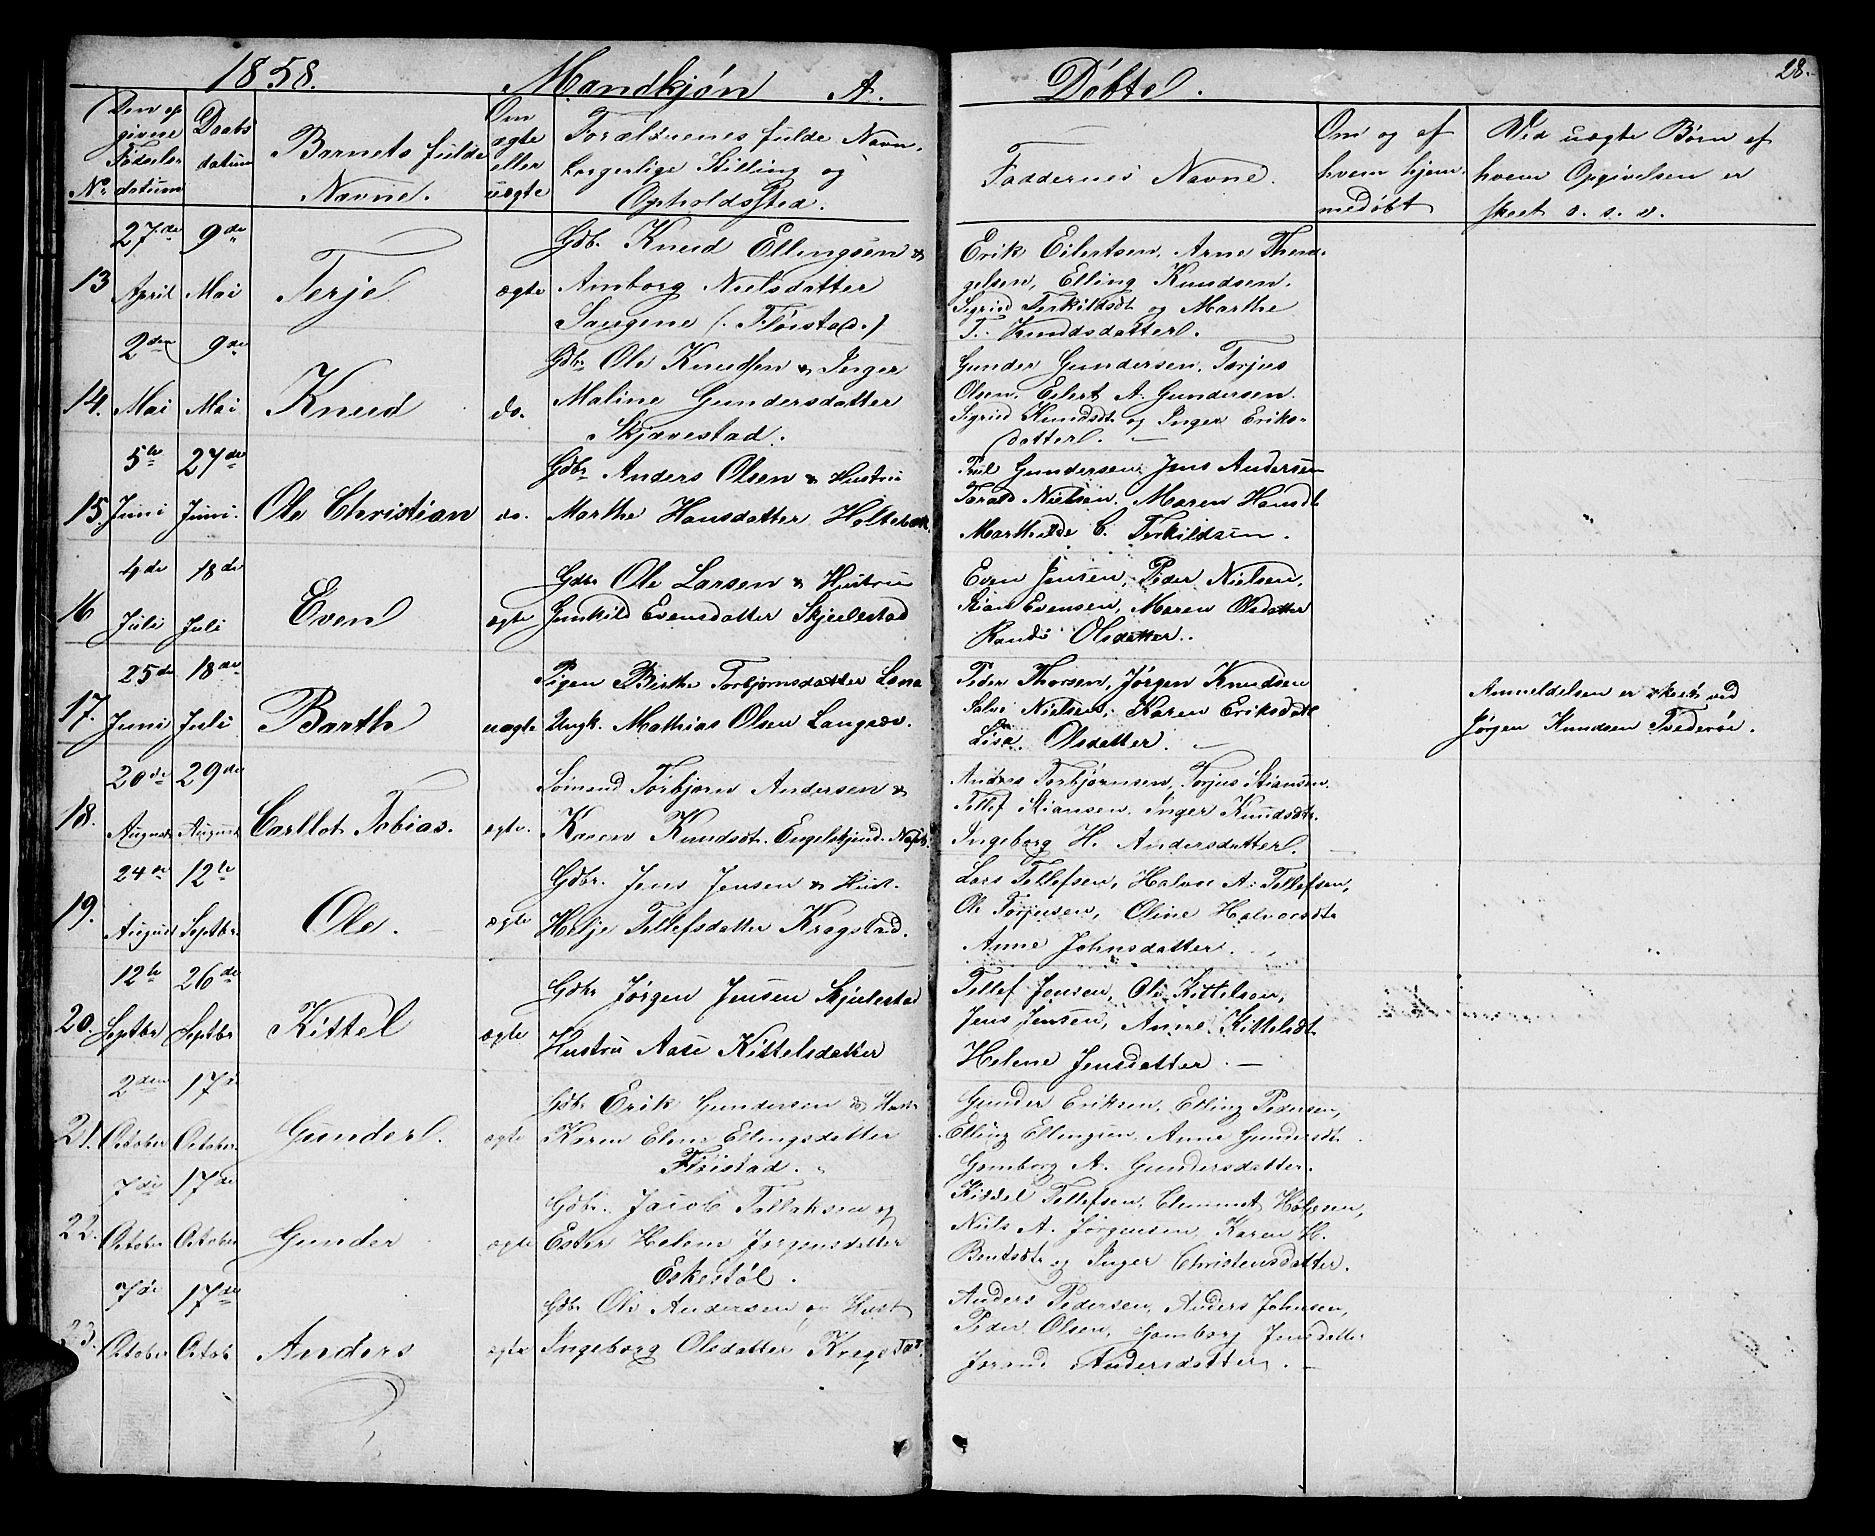 1858. Mandkjøn A. Døbte. 28.
No. Den opgivne Fødselsdatum
Daabsdatum
Barnets fulde Navne.
Om ægte eller uægte
Forældrenes fulde Navn, borgerlige Stilling og Opholdssted.
Faddernes Navne.
Om og af hvem hjemmedøbt
Ved uægte Børn af hvem Opgivelsen er skeet o. s. v.
13 27de April 9de Mai Terje ægte
Gdb. Knud Ellingsen &
Amborg Nielsdatter
Saugene (. Fløistad.)
Erik Eilertsen, Arne Thend-
gelsen, Elling Knudsen.
Sigrid Terkildsdt og Marthe
T. Knudsdatter.
14. 2den Mai 9de Mai Knud do.
Gdbr Ole Knudsen & Inger
Maline Gundersdatter
Skjævestad.
Gunder Gundersen, Torjus
Olsen, Eilert A. Gundersen.
Sigrid Knudsdt og Inger Eriks-
datter. —
15. 5te Juni 27de Juni. Ole Christian do.
Gdbr Anders Olsen & Hustru
Marthe Hansdatter
Gundersen, Jens Andersen
Tarald Nielsen. Maren Hansdt
C. Terkildsen.
16 4de Juli 18de Juli Even ægte
Gdbr Ole Larsen & Hustru
Gunhild Evensdatter Skjulestad
Even Jensen, Peder Nielsen,
Stian Evensen, Maren Olsdatter
Olsdatter.
17. 25de Juni 18de Juli Barth uægte
Pigen Birthe Torbjørnsdatter
Ungk. Mathias Olsen Langsæv.
Peder Thorsen, Jørgen Knudsen
Salve Nielsen, Karen Eriksdatt
Lisa Olsdatter. —
Anmeldelsen er skeet ved
Jørgen Knudsen Tvederøe.
18. 20de August 29de August Carllot Tobias. ægte.
Sømand Torbjørn Andersen &
Karen Knudsdt.
Anders Torbjørnsen, Torjus Stiansen
Tellef Stiansen, Inger Knudsdt.
Ingeborg H. Andersdatter.
19. 24de August 12te Septbr. Ole. ægte
Gdbr. Jens Jensen & Hust.
Helje Tellefsdatter Kragstad.
Lars Tellefsen, Halvor A. Tellefsen,
Ole Torjusen, Oline Halvorsdt
Anne Johnsdatter.
20. 12te Septbr 26de Septbr Kittel ægte
Gdbr Jørgen Jensen Skjulestad
Hustru Aase Kittelsdatter
Tellef Jensen, Ole Kittelsen,
Jens Jensen, Anne Kittelsdt
Helene Jensdatter. —
21. 2den October 17de October Gunder. ægte
Gdbr Erik Gundersen & Hustr
Karen Elene Ellingsdatter
Fløistad.
Gunder Eriksen, Elling Pedersen,
Elling Ellingsen, Anne Gundersdt.
Gomborg A. Gundersdatter.
22. 7de October 17de October Gunder ægte
Gdbr. Jacob Tallaksen og
Ester Helene Jørgensdatter
Eskestøl.
Kiddel Tellefsen, Clemmet
Niels A. Jørgensen, Karen H.
Bentsdt og Inger Christensdatter.
23. 7de October 17de Octob. Anders ægte
Gdbr Ole Andersen og Hust
Ingeborg Olsdatter
Anders Pedersen, Anders Johnsen,
Peder Olsen, Gomborg Jensdatter
Jorand Andersdatter. —